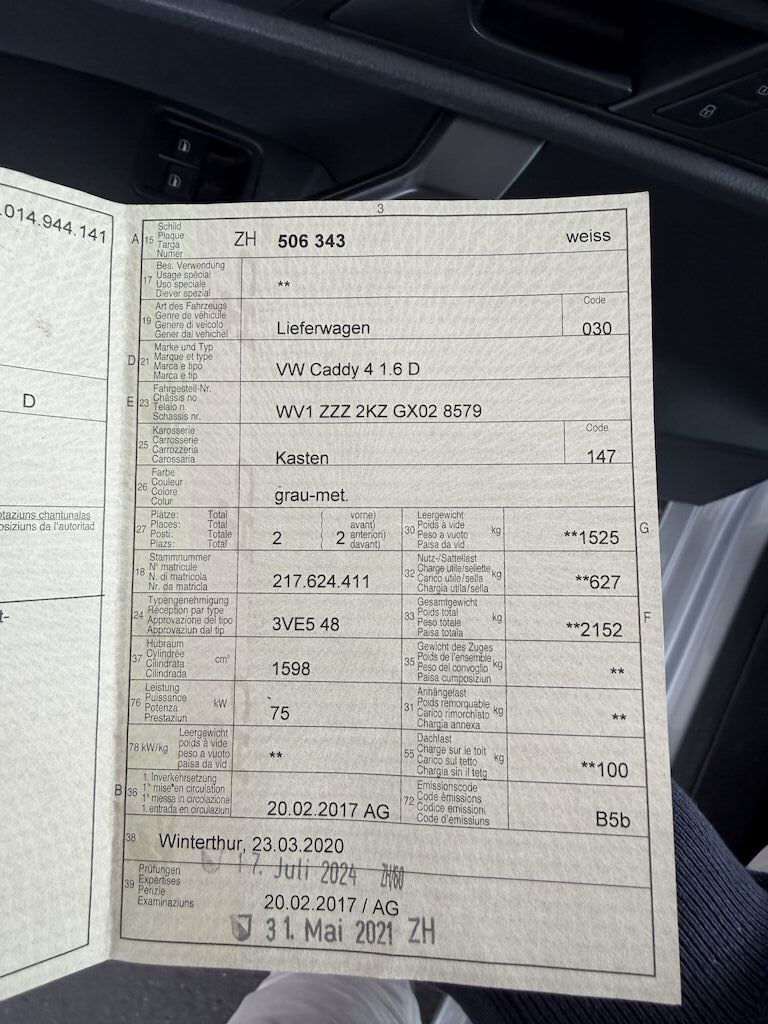 .014.944.141
D
otaziuns chantunalas
osiziuns da l'autoritad
t-
3
A 15 Schild
Plaque
Targa
Numer
ZH 506 343 weiss
17 Bes. Verwendung
Usage spécial
Uso speciale
Diever spezial
**
19 Art des Fahrzeugs
Genre de véhicule
Genere di veicolo
Gener dal vehichel
Lieferwagen
Code
030
D 21 Marke und Typ
Marque et type
Marca e tipo
Marca e tip
VW Caddy 4 1.6 D
E 23 Fahrgestell-Nr.
Châssis no
Telaio n.
Schassis nr.
WV1 ZZZ 2KZ GX02 8579
25 Karosserie
Carrosserie
Carrozzeria
Carossaria
Kasten
Code
147
26 Farbe
Couleur
Colore
Colur
grau-met.
27 Plätze: Total
Places: Total
Posti: Totale
Plazs: Total
2
( vorne)
( avant)
2 anteriori)
( davant)
30 Leergewicht
Poids à vide
Peso a vuoto
Paisa da vid
kg
**1525
G
18 Stammnummer
N° matricule
N. di matricola
Nr. da matricla
217.624.411
32 Nutz-/Sattellast
Charge utile/sellette
Carico utile/sella
Chargia utila/sella
kg
**627
24 Typengenehmigung
Réception par type
Approvazione del tipo
Approvaziun dal tip
3VE5 48
33 Gesamtgewicht
Poids total
Peso totale
Paisa totala
kg
**2152
F
37 Hubraum
Cylindrée
Cilindrata
Cilindrada
cm³
1598
35 Gewicht des Zuges
Poids de l'ensemble
Peso del convoglio
Paisa cumposiziun
kg
**
76 Leistung
Puissance
Potenza
Prestaziun
kW
75
31 Anhängelast
Poids remorquable
Carico rimorchiato
Chargia annexa
kg
**
78 kW/kg Leergewicht
poids à vide
peso a vuoto
paisa da vid
**
55 Dachlast
Charge sur le toit
Carico sul tetto
Chargia sin il tetg
kg
**100
B 36 1. Inverkehrsetzung
1re mise en circulation
1a messa in circolazione
1. entrada en circulaziun
20.02.2017 AG
72 Emissionscode
Code émissions
Codice emissioni
Code d'emissiuns
B5b
38 Winterthur, 23.03.2020
17. Juli 2024 ZH/60
39 Prüfungen
Expertises
Perizie
Examinaziuns
20.02.2017 / AG
31. Mai 2021 ZH